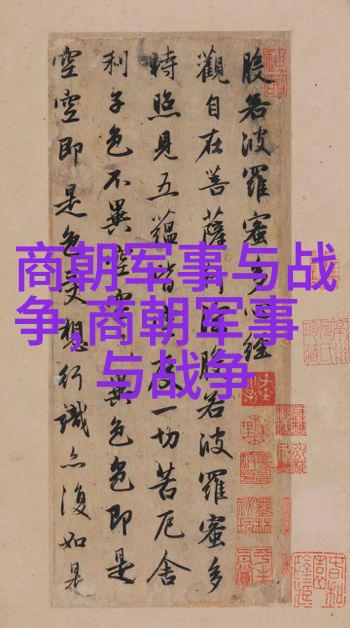 商朝军事与战
争,商朝军事
与战争
般若波羅蜜多心經
觀自在菩薩行深般若波羅蜜多
時照見五蘊皆空度一切苦厄舍
利子色不異空空不異色色即是
空空即是色受想行識亦復如是